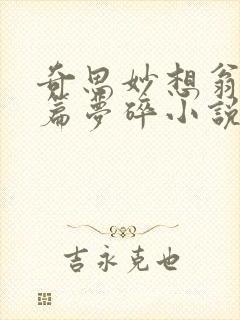 奇思妙想翁
篇夢碎小説
吉永克也